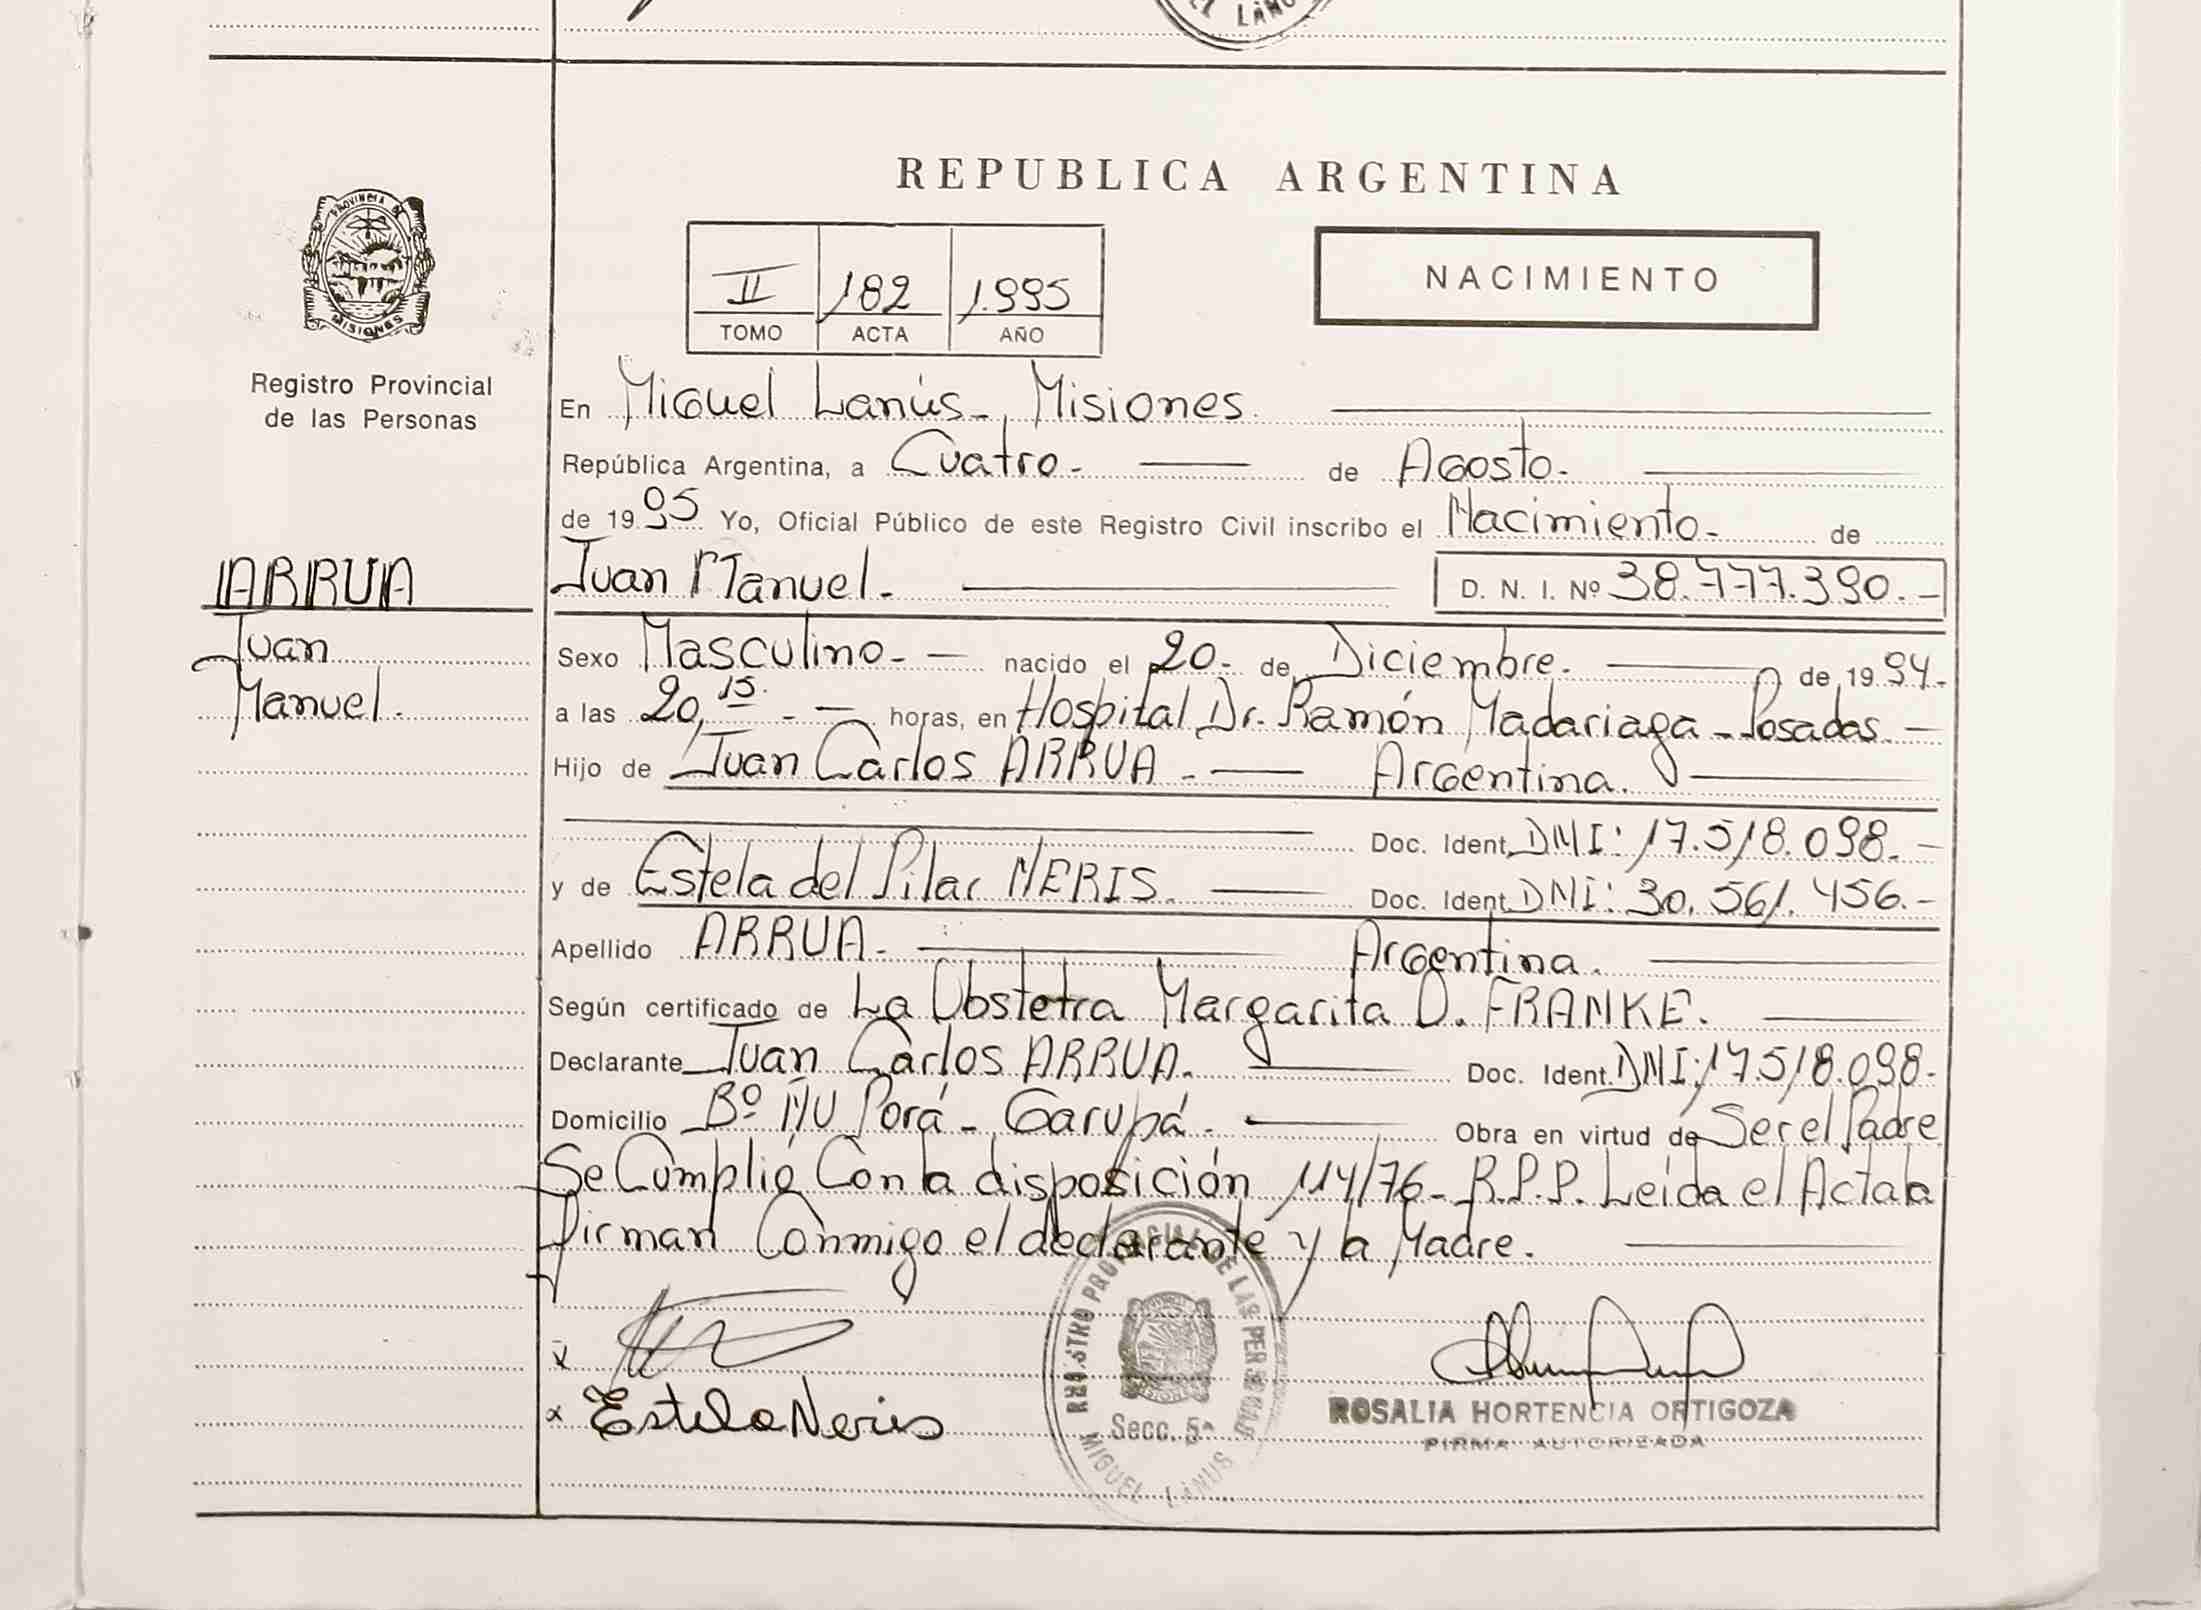 EL LANU
REPUBLICA ARGENTINA
PROVINCIA DE
MISIONES
II 182 1.995
TOMO ACTA AÑO
NACIMIENTO
Registro Provincial
de las Personas
En Miguel Lanús-, Misiones.
República Argentina, a Cuatro- de Agosto-
de 19 95 Yo, Oficial Público de este Registro Civil inscribo el Nacimiento- de
ARRUA
Juan
Manuel.
Juan Manuel.- D. N. I. Nº 38.777.390.-
Sexo Masculino.- nacido el 20.- de Diciembre.- de 19 94.-
a las 20,15.- horas, en Hospital Dr. Ramón Madariaga - Posadas.-
Hijo de Juan Carlos ARRUA.- Argentina.
Doc. Ident. DNI: 17.518.098.-
y de Estela del Pilar NERIS. Doc. Ident. DNI: 30.561.456.-
Apellido ARRUA.- Argentina.
Según certificado de La Obstetra Margarita D. FRANKE.
Declarante Juan Carlos ARRUA. Doc. Ident. DNI: 17.518.098.-
Domicilio Bº ÑU Porá - Garupá.- Obra en virtud de Ser el Padre
Se Cumplió Con la disposición 114/76- R.P.P. Leída el Acta la
firman Conmigo el declarante y la Madre.
x
x Estela Neris
REGISTRO PROVINCIAL DE LAS PERSONAS
Secc. 5ª
MIGUEL LANUS
ROSALIA HORTENCIA ORTIGOZA
FIRMA AUTORIZADA